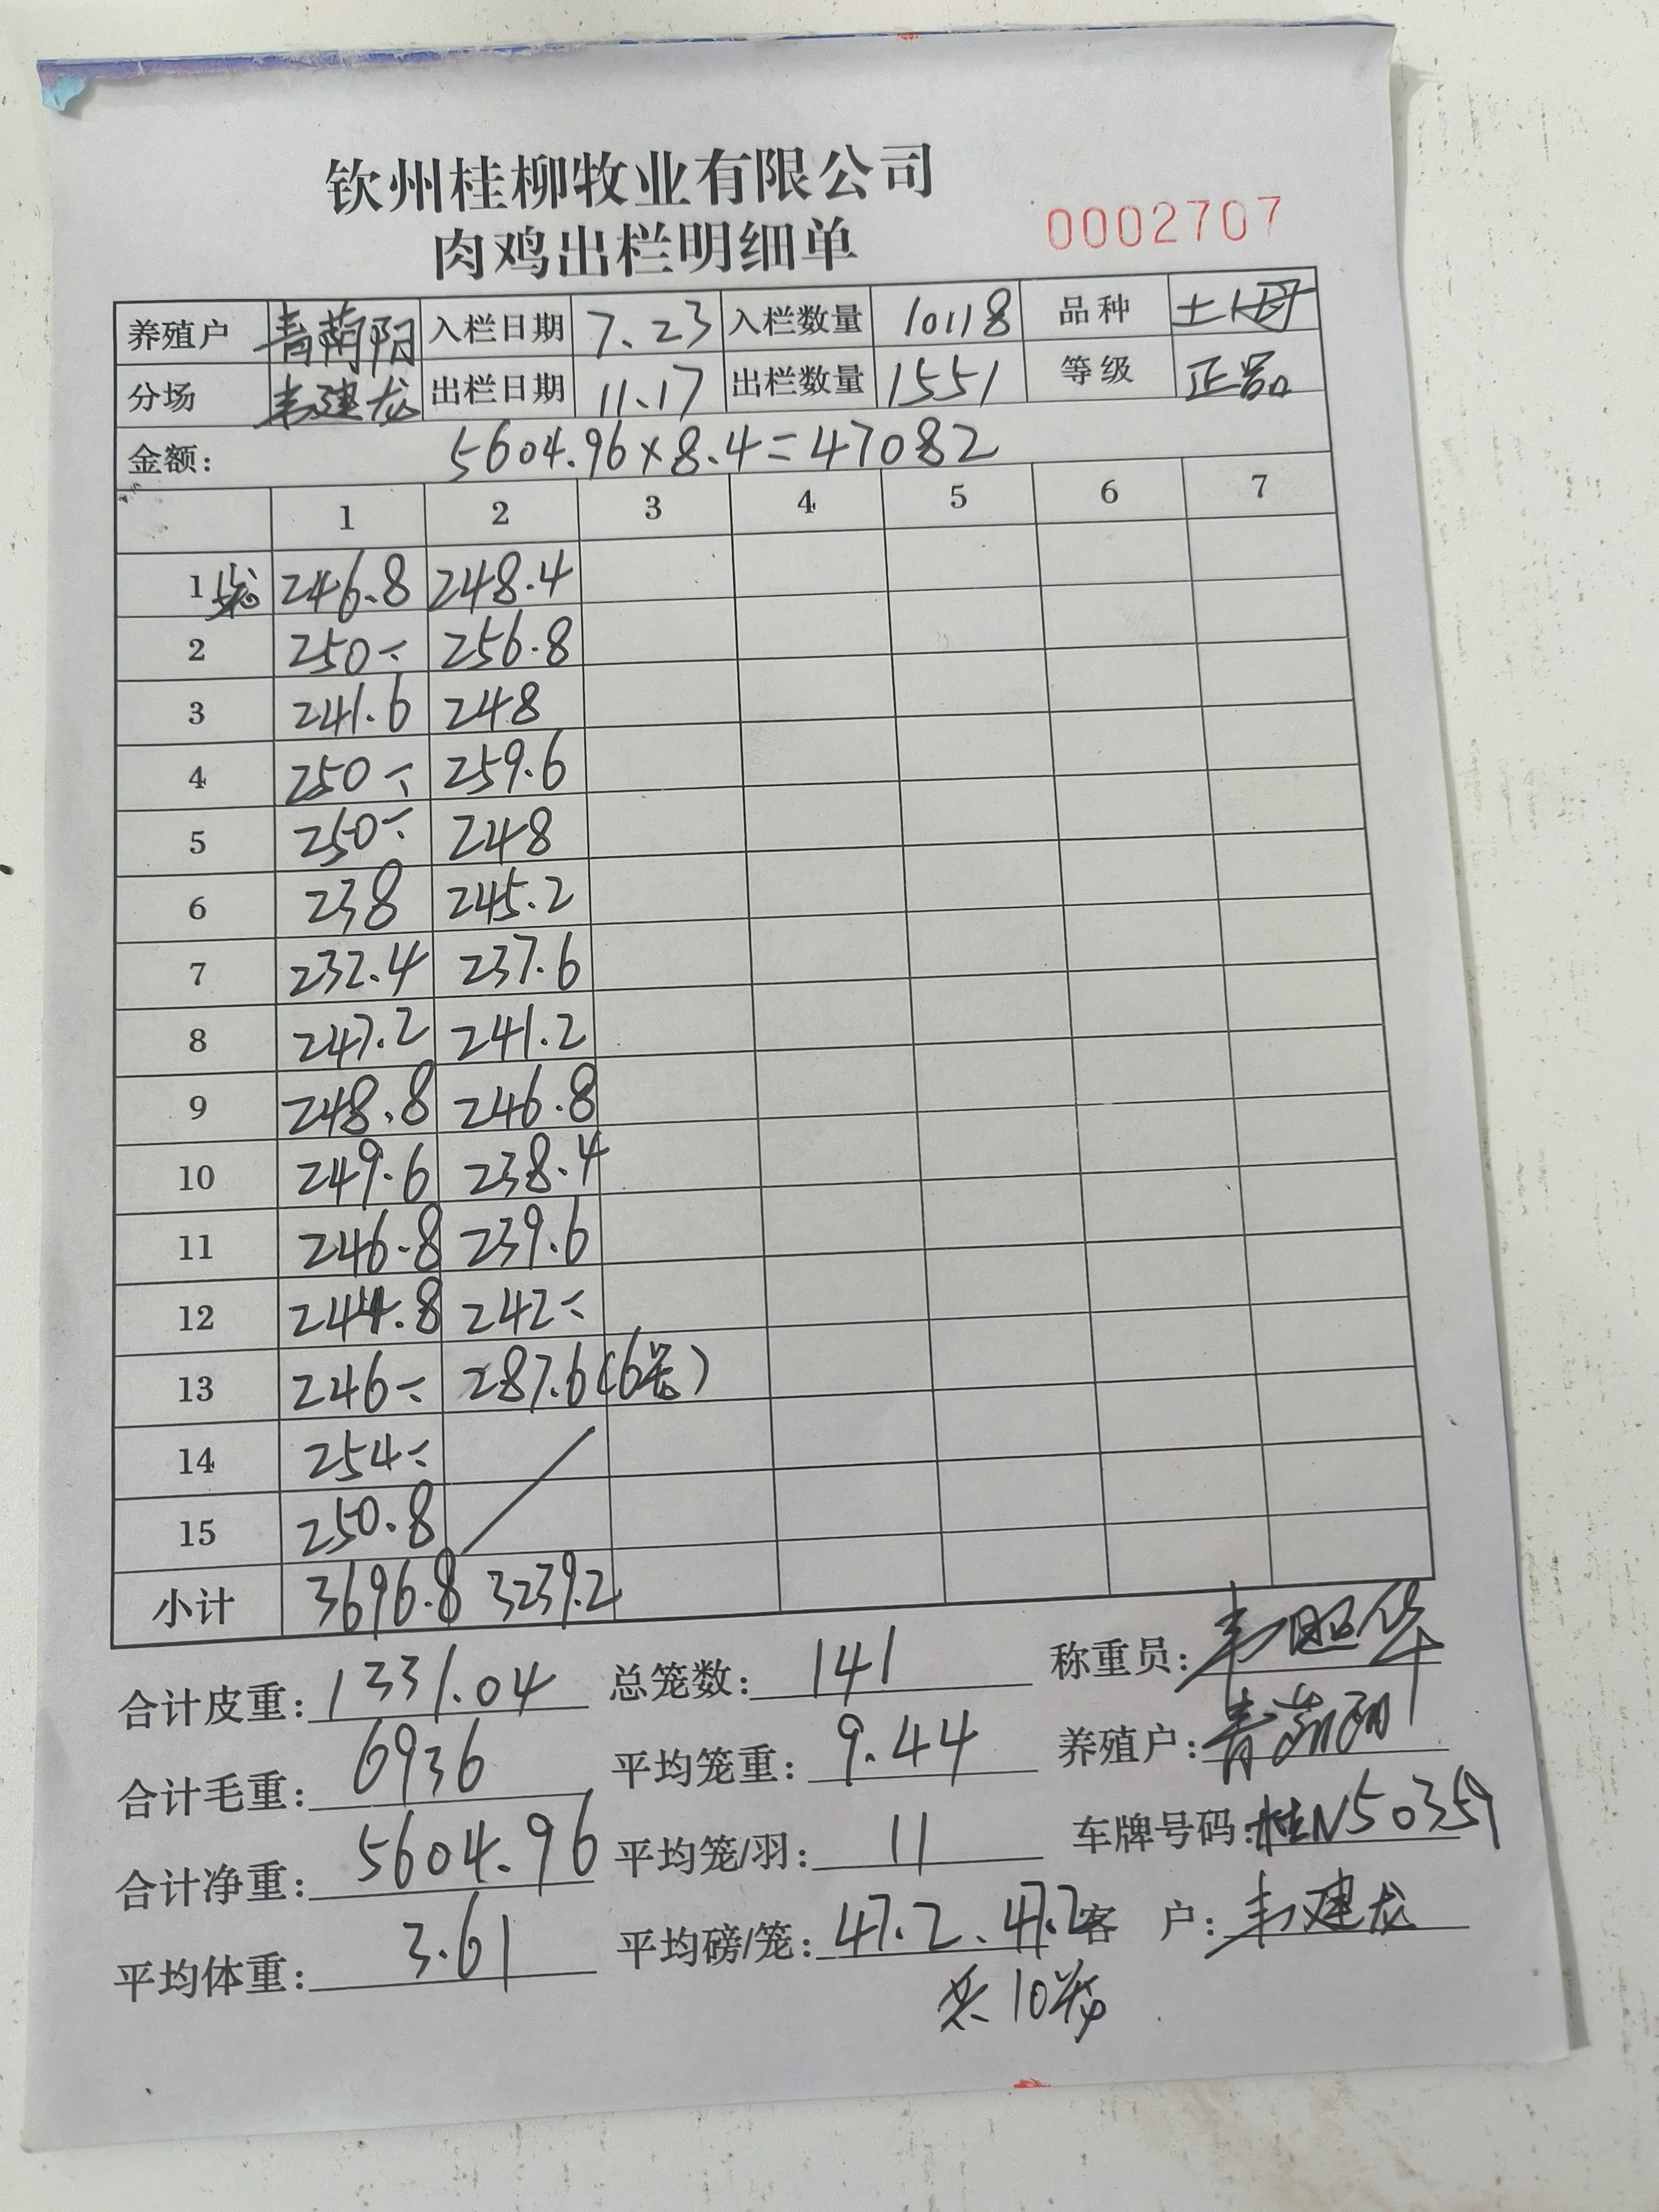 钦州桂柳牧业有限公司
肉鸡出栏明细单
0002707
养殖户 青 阳 入栏日期 7.23 入栏数量 10118 品种 土1母
分场 韦建龙 出栏日期 11.17 出栏数量 1551 等级 正品
金额: 5604.96×8.4=47082
1 2 3 4 5 6 7
1 5笼 246.8 248.4
2 250÷ 256.8
3 241.6 248
4 250÷ 259.6
5 250÷ 248
6 238 245.2
7 232.4 237.6
8 247.2 241.2
9 248.8 246.8
10 249.6 238.4
11 246.8 239.6
12 244.8 242÷
13 246÷ 287.6(6笼)
14 254÷
15 250.8
小计 3696.8 3239.2
合计皮重: 1331.04 总笼数: 141 称重员: 韦昭华
合计毛重: 6936 平均笼重: 9.44 养殖户: 青 阳
合计净重: 5604.96 平均笼/羽: 11 车牌号码: 桂N50359
平均体重: 3.61 平均磅/笼: 47.2、47.2 客 户: 韦建龙
共10笼